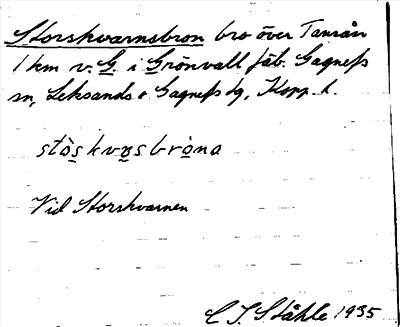 Storskvarnsbron bro över Tansån
1 km v. G. i Grönvall fäb. Gagnefs
sn, Leksands o Gagnefs tg, Kopp. l.
stòskvǫsbròna
Vid Storskvarnen
C I Ståhle 1935